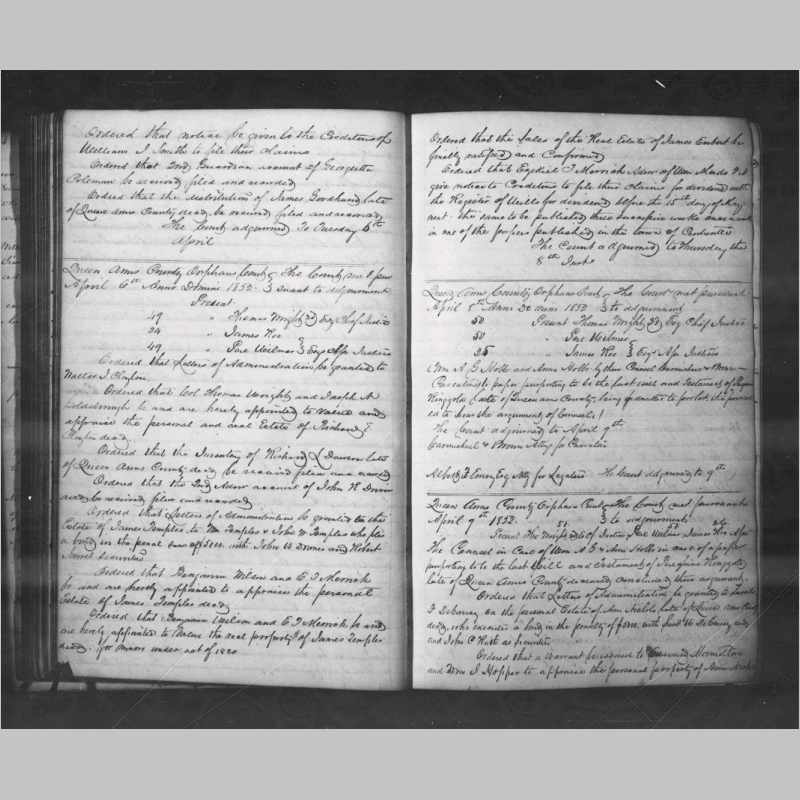 Ordered that notice be given to the Creditors of
William J Smith to file their Claims
Ordered that 2nd Guardian account of Georgetta
Coleman be received filed and recorded
Ordered that the distribution of James Goodhand late
of Queen Anns County decd. be received filed and recorded
The Court adjourned to Tuesday 6th
April
Queen Anns County Orphans Court The Court met pur
April 6th Anno Domini 1852 } suant to adjournment
Present
49 " Thomas Wright 3d Esq Chief Justice
24 " James Roe
49 " Pere Wilmer } Esqs Ass Justices
Ordered that Letters of Administration be granted to
Walter J Clayton
Ordered that Col Thomas Wright and Joseph A
Goldsborough be and are hereby appointed to value and
appraise the personal and real Estate of Richard
Clayton decd.
Ordered that the Inventory of Richard Dawson late
of Queen Anns County decd. be received filed and recorded
Ordered that the 2nd Admr account of John R
decd. be received filed and recorded
Ordered that Letters of Administration be granted on the
Estate of James Temples to Wm Temples & John W Temples who file
a bond in the penal sum of with John W and Robert
securities
Ordered that Benjamin Wilson and E J Merrick
be and are hereby appointed to appraise the personal
Estate of James Temples decd
Ordered that Benjamin Wilson and E J Merrick be and
are hereby appointed to value the real property of James Temples
decd. for minors under act of 1820
Ordered that the Sales of the Real Estate of James be
finally ratified and Confirmed
Ordered that Ezekiel J Merrick Admr of Wm Meeds
give notice to Creditors to file their Claims for dividend with
the Register of Wills for dividend before the 15th day of May
next. The same to be published three successive weeks once a week
in one of the papers published in the town of Centreville
The Court adjourned to Thursday the
8th Inst
Queen Anns County Orphans Court The Court met pursuant
April 8th Anno Do mini 1852 } to adjournment
50 Present Thomas Wright 3d Esq Chief Justice
50 " Pere Wilmer
25 " James Roe } Esqs Ass Justices
Wm A G Nolls and Anne Nolls by their Council Carmichael & Brown
paper purporting to be the last will and testament of
Ringgold late of Queen Anns County, being
ed to hear the argument of Councils!
The Court adjourned to April 9th
Carmichael & Brown Attys for Caveator
Emory Esq Atty for Legatees The Court adjourned to 9th
Queen Anns County Orphans Court The Court met pursuant
April 9th 1852 } to adjournment
51
Present Thos Wright 3d Cf Justice Pere Wilmer James Roe Ass
The Council in Case of Wm A G & Ann Nolls in case of a paper
purporting to be the last Will and testament of Peregrine Ringgold
late of Queen Anns County deceased concluded their argument.
Ordered that Letters of Administration be granted to
on the personal Estate of Ann Nichols late of Queen Anns County
decd., who executes a bond in the penalty of with
and John C Ruth as securities
Ordered that a warrant be issued to
and Wm J Hopper to appraise the personal property of Ann Nichols